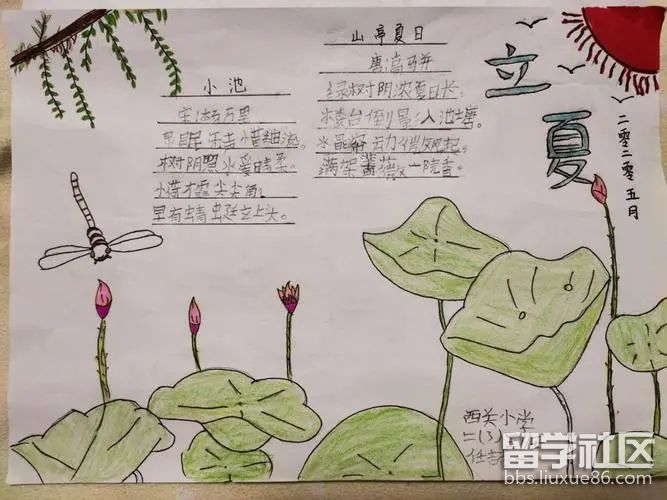 立夏
二零二零五月
山亭夏日
唐高骈
绿树阴浓夏日长。
楼台倒影入池塘。
水晶帘动微风起。
满架蔷薇一院香。
小池
宋杨万里
泉眼无声惜细流。
树阴照水爱晴柔。
小荷才露尖尖角。
早有蜻蜓立上头。
西关小学
二(3)
留学社区
bbs.liuxue86.com